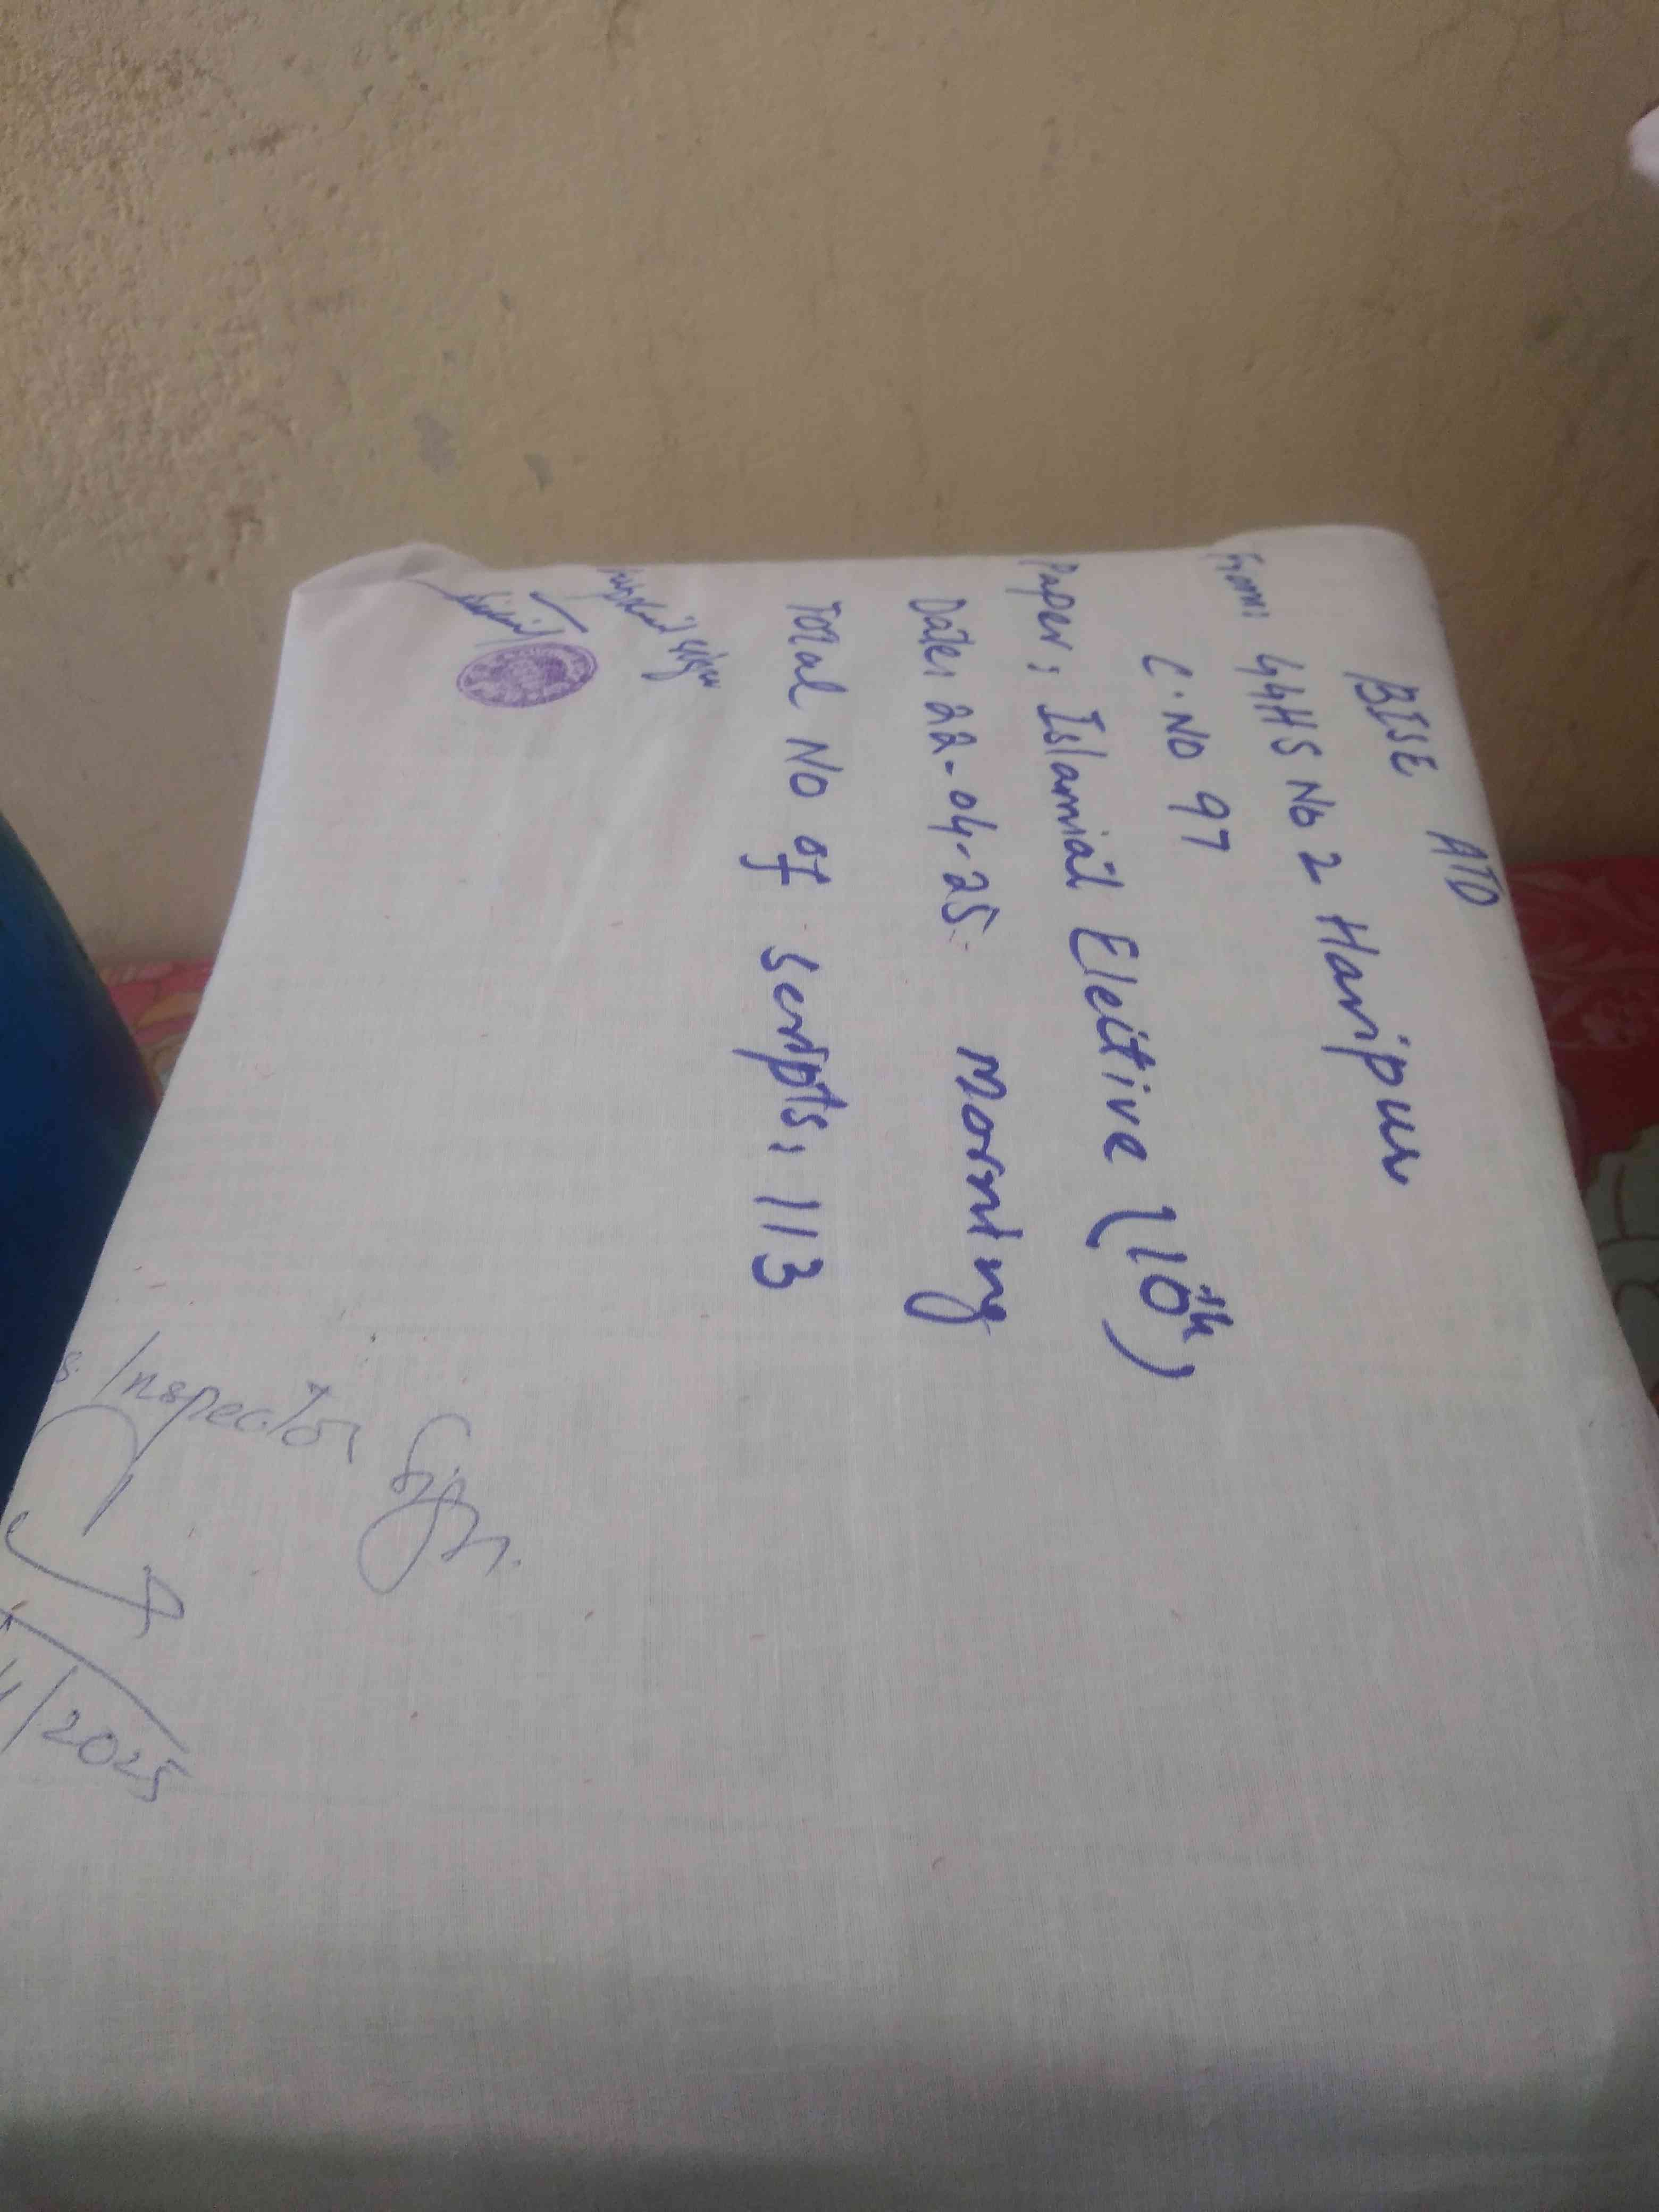 BISE ATD
From: GGHS No 2 Haripur
C.NO 97
Paper: Islamiat Elective (10th)
Date: 22-04-25 Morning
Total No of Scripts: 113
Inspector Sign.
/2025